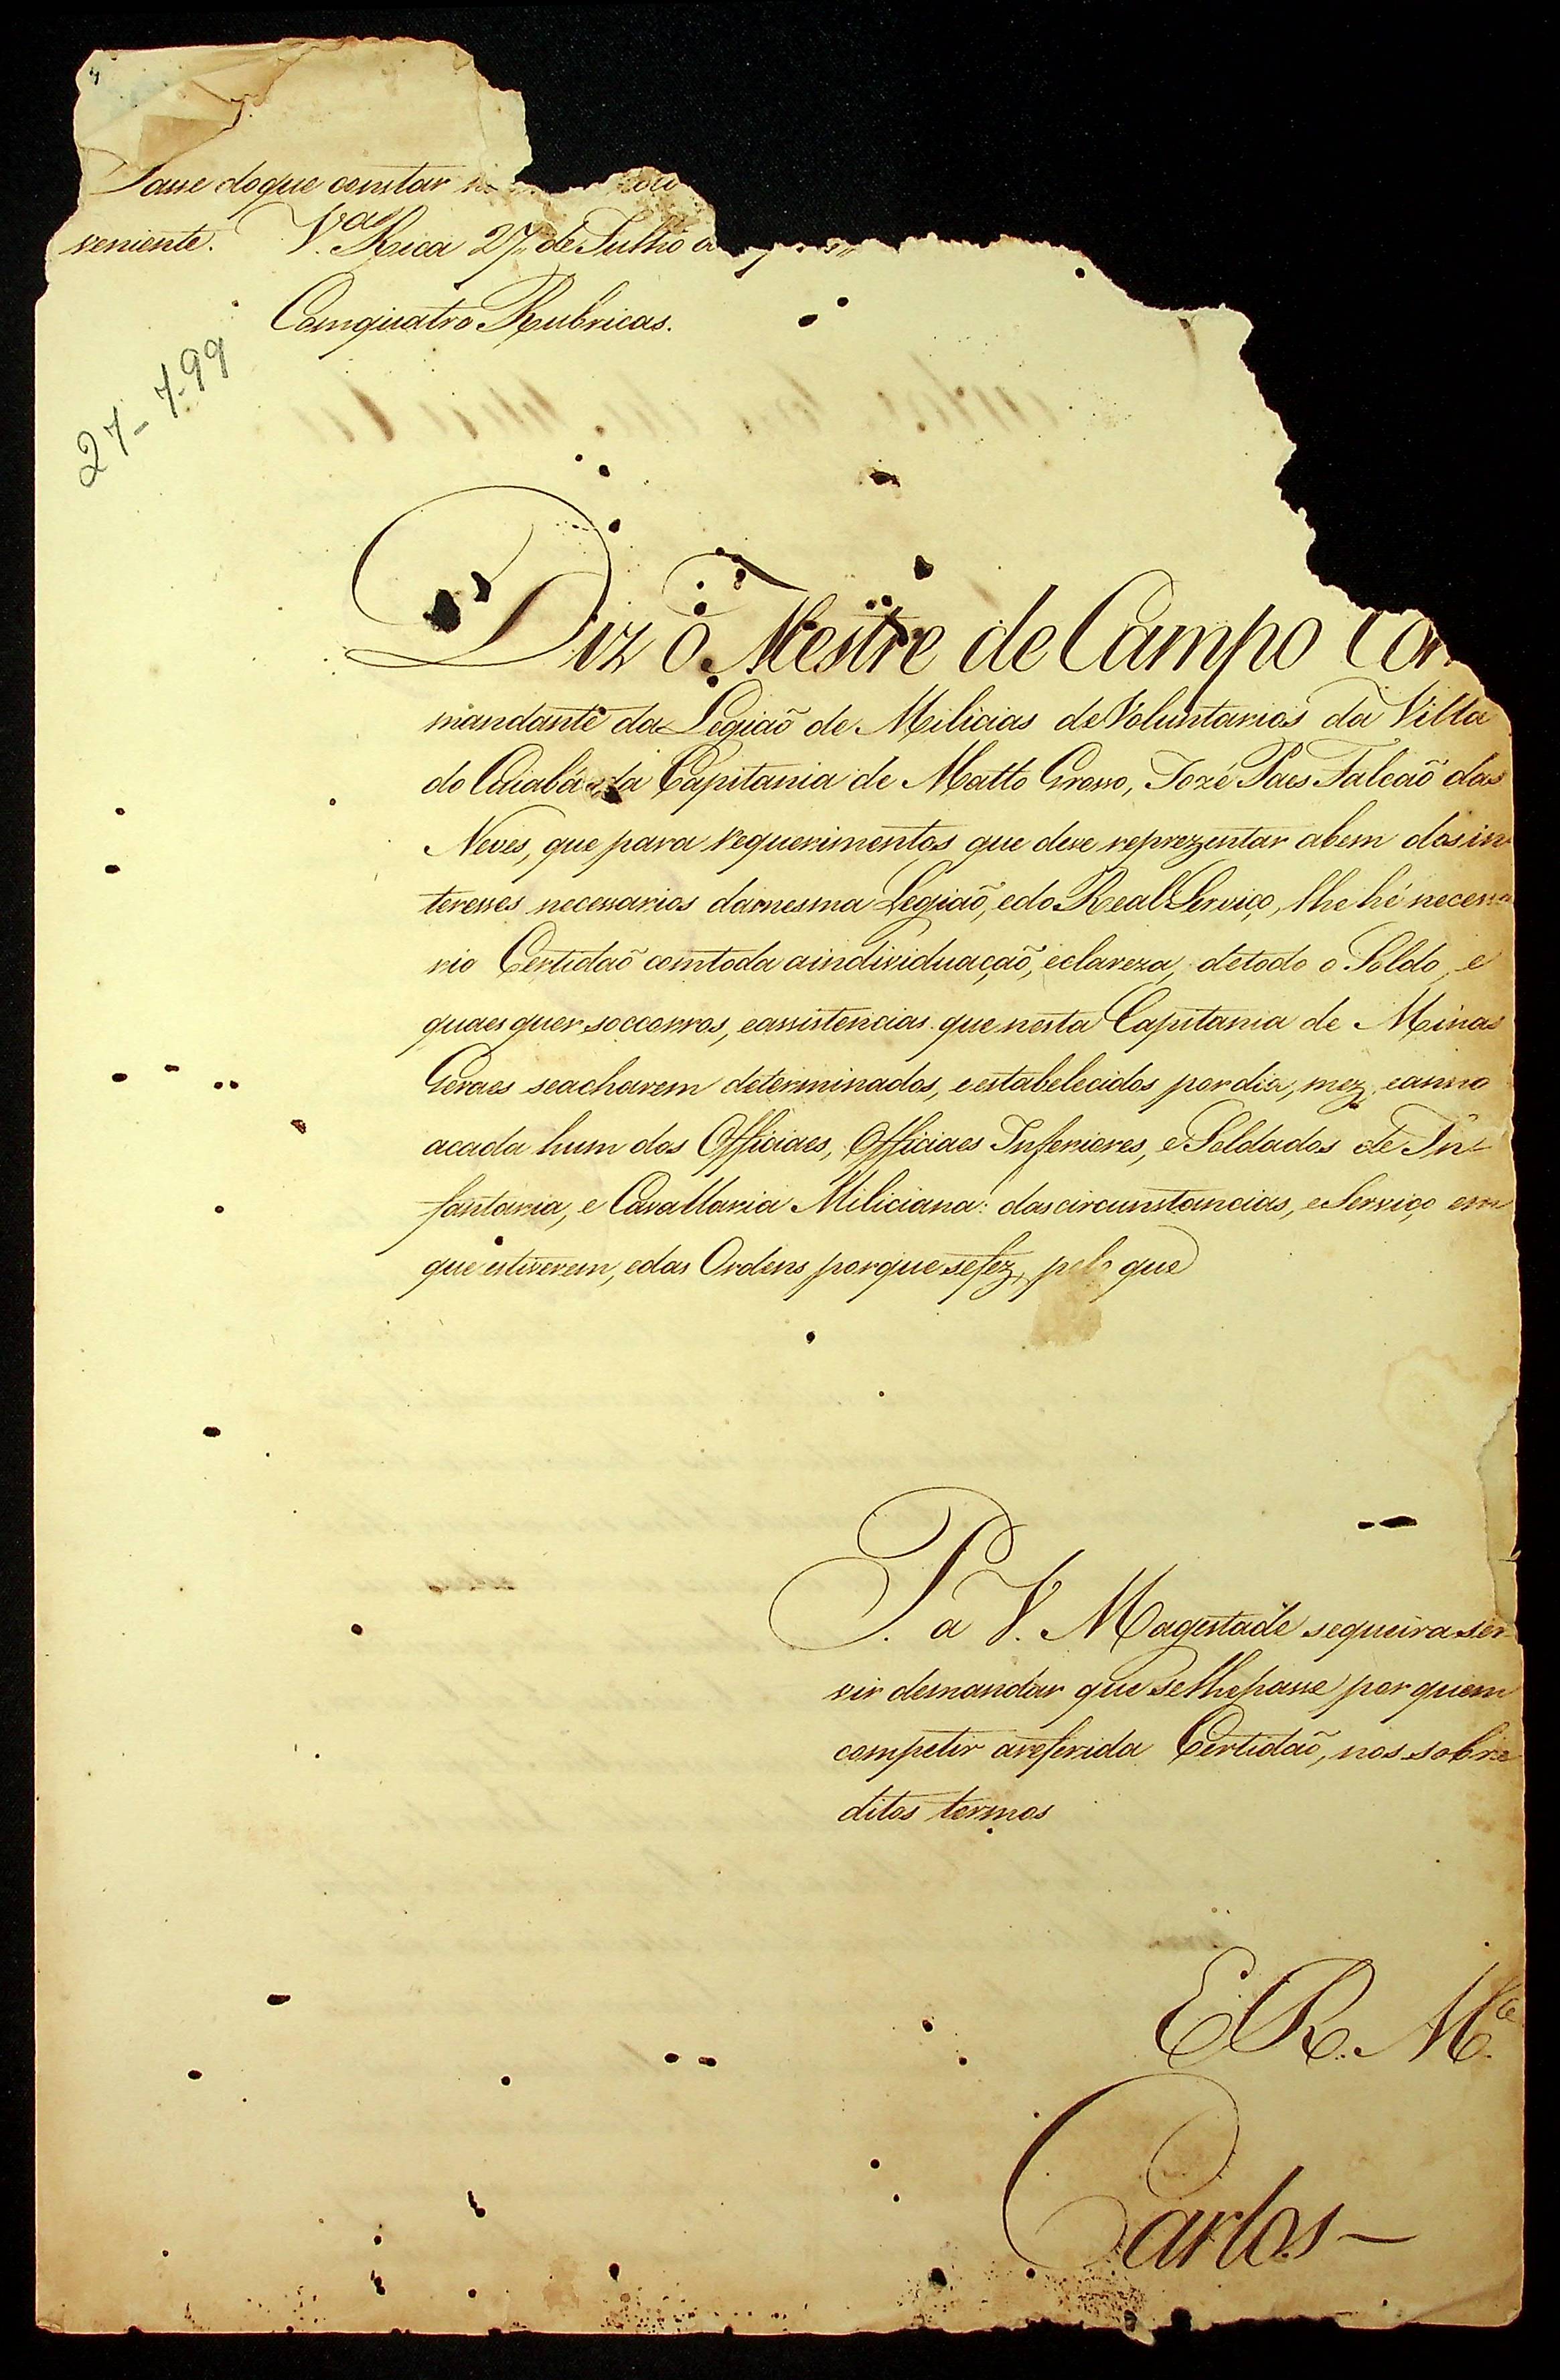 Passe do que constar
veniente. V.ª Rica 27 de Julho
Comquatro Rubricas.
27-7-99
Diz o Mestre de Campo Com
mandante da Legiaõ de Milicias de Voluntarios da Villa
do Cuiabá da Capitania de Matto Grosso, Jozé Paes Falcaõ das
Neves, que para requerimentos que deve reprezentar abem dos in
teresses necessarios damesma Legiaõ, edo Real Serviço, lhe hé necessa
rio Certidaõ comtoda aindividuaçaõ, eclareza, detodo o Soldo, e
quaesquer soccorros, eassistencias que nesta Capitania de Minas
Geraes seacharem determinados, eestabelecidos por dia, mez, eanno
acada hum dos Officiaes, Officiaes Inferiores, e Soldados de In
fantaria, e Cavallaria Miliciana: das circunstancias, eServiço em
que estiverem, edas Ordens porque sefez, pelo que
P. a V. Magestade sequeira ser
vir demandar que selhepasse por quem
competir areferida Certidaõ, nos sobre
ditos termos
E. R. M.ce
Carlos